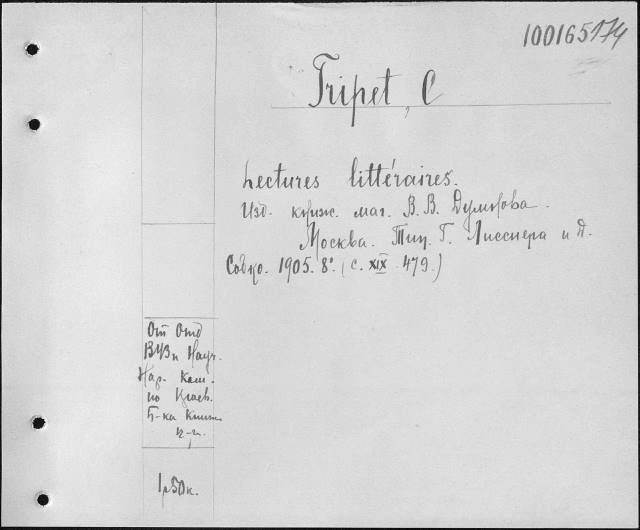 100165174
Tripet, C
Lectures littéraires.
Изд. книж. маг. В. В. Думнова.
Москва. Тип. Г. Лисснера и Д.
Собко. 1905. 8°. (с. XIX 479.)
От Отд
Нар. Ком.
по
Б-ка Книж
1р50к.